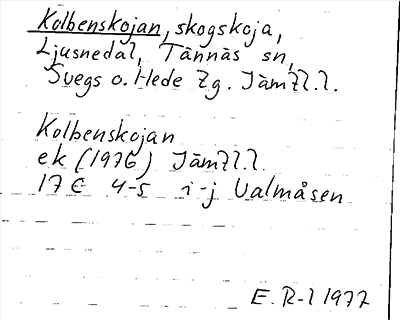 Kolbenskojan, skogskoja,
Ljusnedal, Tännäs sn,
Svegs o. Hede tg. Jämtl.l.
Kolbenskojan
ek (1976) Jämtl.l.
17 C 4-5 i-j Valmåsen
E. R-l 1977